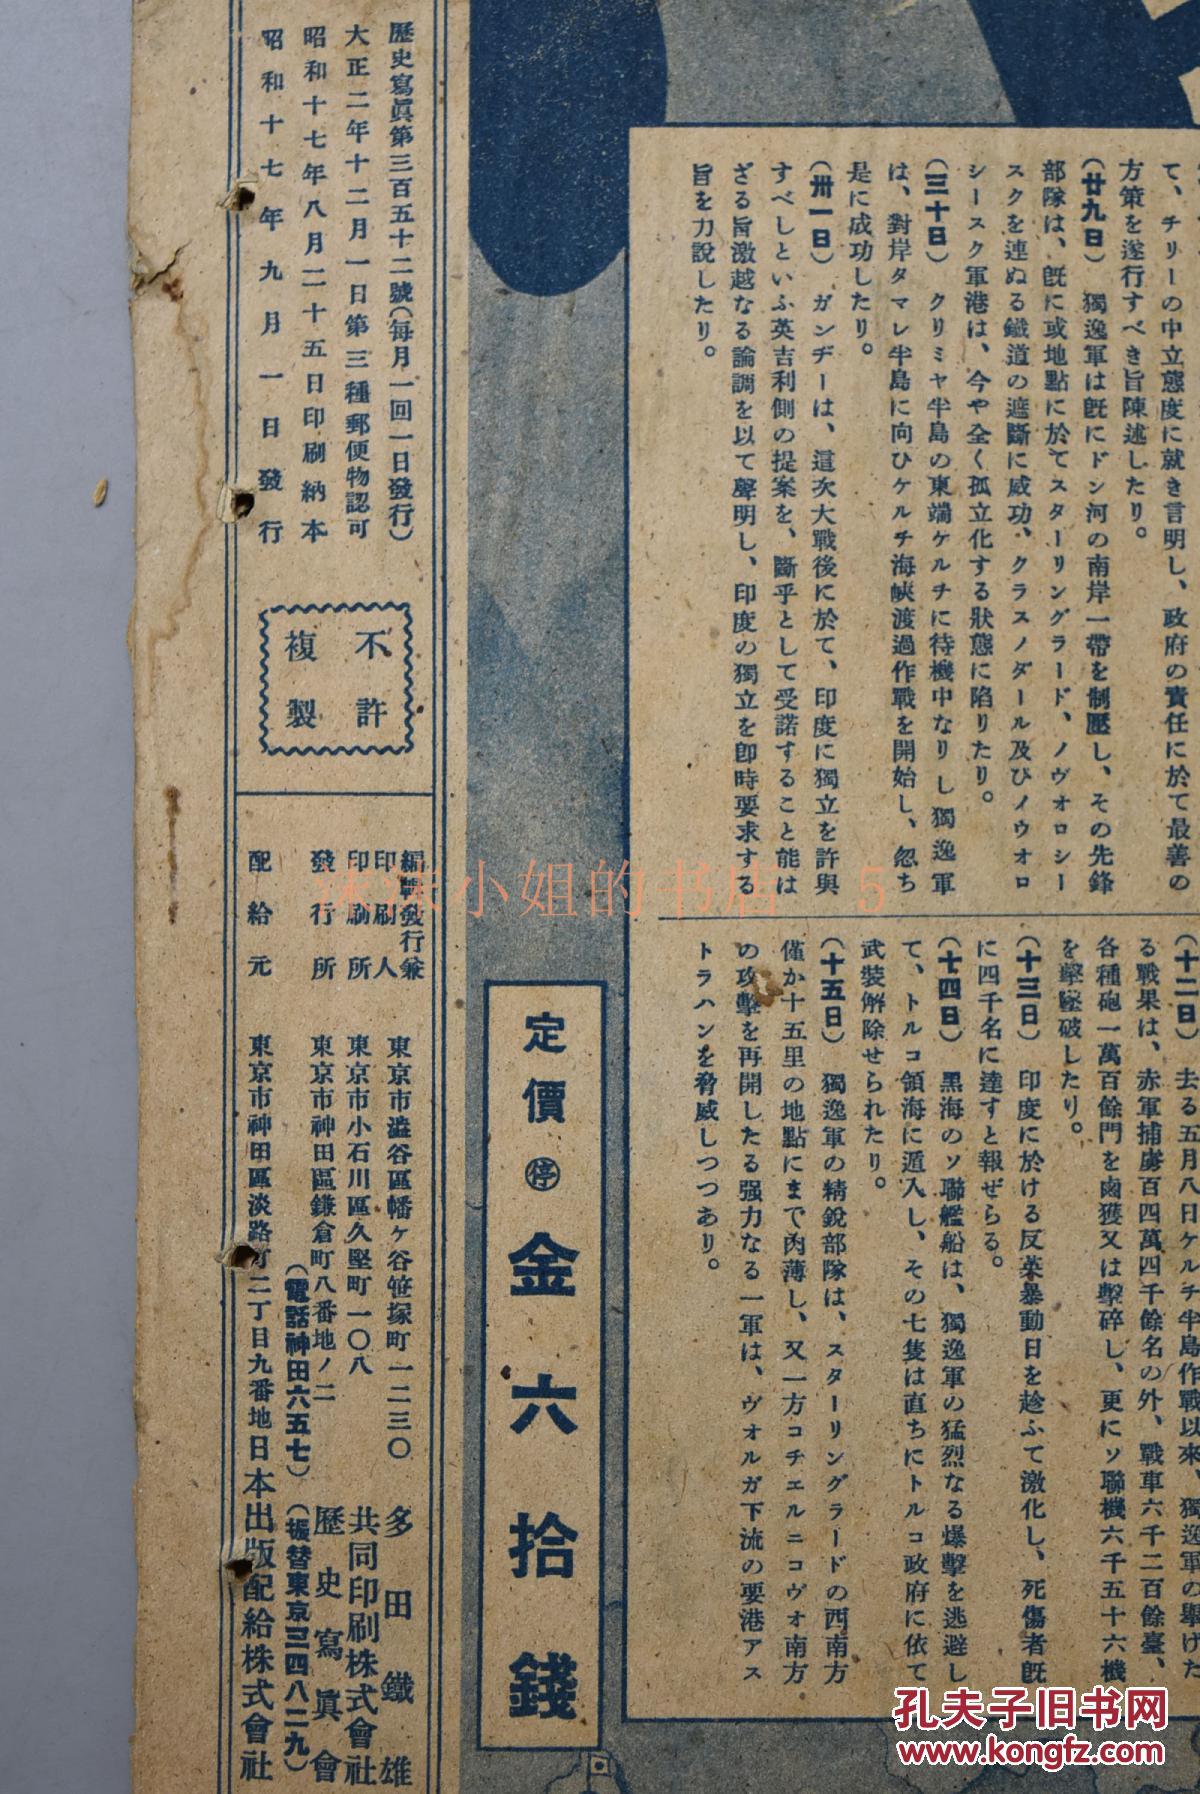 て、チリーの中立態度に就き言明し、政府の責任に於て最善の
方策を遂行すべき旨陳述したり。
(廿九日) 獨逸軍は既にドン河の南岸一帶を制壓し、その先鋒
部隊は、既に或地點に於てスターリングラード、ノヴオロシー
スクを連ぬる鐵道の遮斷に成功、クラスノダール及びノウオロ
シースク軍港は、今や全く孤立化する狀態に陷りたり。
(三十日) クリミヤ半島の東端ケルチに待機中なりし獨逸軍
は、對岸タマレ半島に向ひケルチ海峽渡過作戰を開始し、忽ち
是に成功したり。
(卅一日) ガンヂーは、這次大戰後に於て、印度に獨立を許與
すべしといふ英吉利側の提案を、斷乎として受諾すること能は
ざる旨激越なる論調を以て聲明し、印度の獨立を卽時要求する
旨を力說したり。
(十二日) 去る五月八日ケルチ半島作戰以來、獨逸軍の擧げた
る戰果は、赤軍捕虜百四萬四千餘名の外、戰車六千二百餘臺、
各種砲一萬百餘門を鹵獲又は擊碎し、更にソ聯機六千五十六機
を擊墜破したり。
(十三日) 印度に於ける反英暴動日を趁ふて激化し、死傷者既
に四千名に達すと報ぜらる。
(十四日) 黑海のソ聯艦船は、獨逸軍の猛烈なる爆擊を逃避し
て、トルコ領海に遁入し、その七隻は直ちにトルコ政府に依て
武裝解除せられたり。
(十五日) 獨逸軍の精銳部隊は、スターリングラードの西南方
僅か十五里の地點にまで肉薄し、又一方コチエルニコヴオ南方
の攻擊を再開したる强力なる一軍は、ヴオルガ下流の要港アス
トラハンを脅威しつつあり。
定價 停 金六拾錢
歷史寫眞第三百五十二號(每月一回一日發行)
大正二年十二月一日第三種郵便物認可
昭和十七年八月二十五日印刷納本
昭和十七年九月一日發行
不許
複製
編輯發行兼
印刷人 東京市澁谷區幡ヶ谷笹塚町一二三〇 多田鐵雄
印刷所 東京市小石川區久堅町一〇八 共同印刷株式會社
發行所 東京市神田區鎌倉町八番地ノ二 歷史寫眞會
(電話神田六五七) (振替東京三四八二九)
配給元 東京市神田區淡路町二丁目九番地 日本出版配給株式會社
小姐的书店 5
孔夫子旧书网
www.kongfz.com